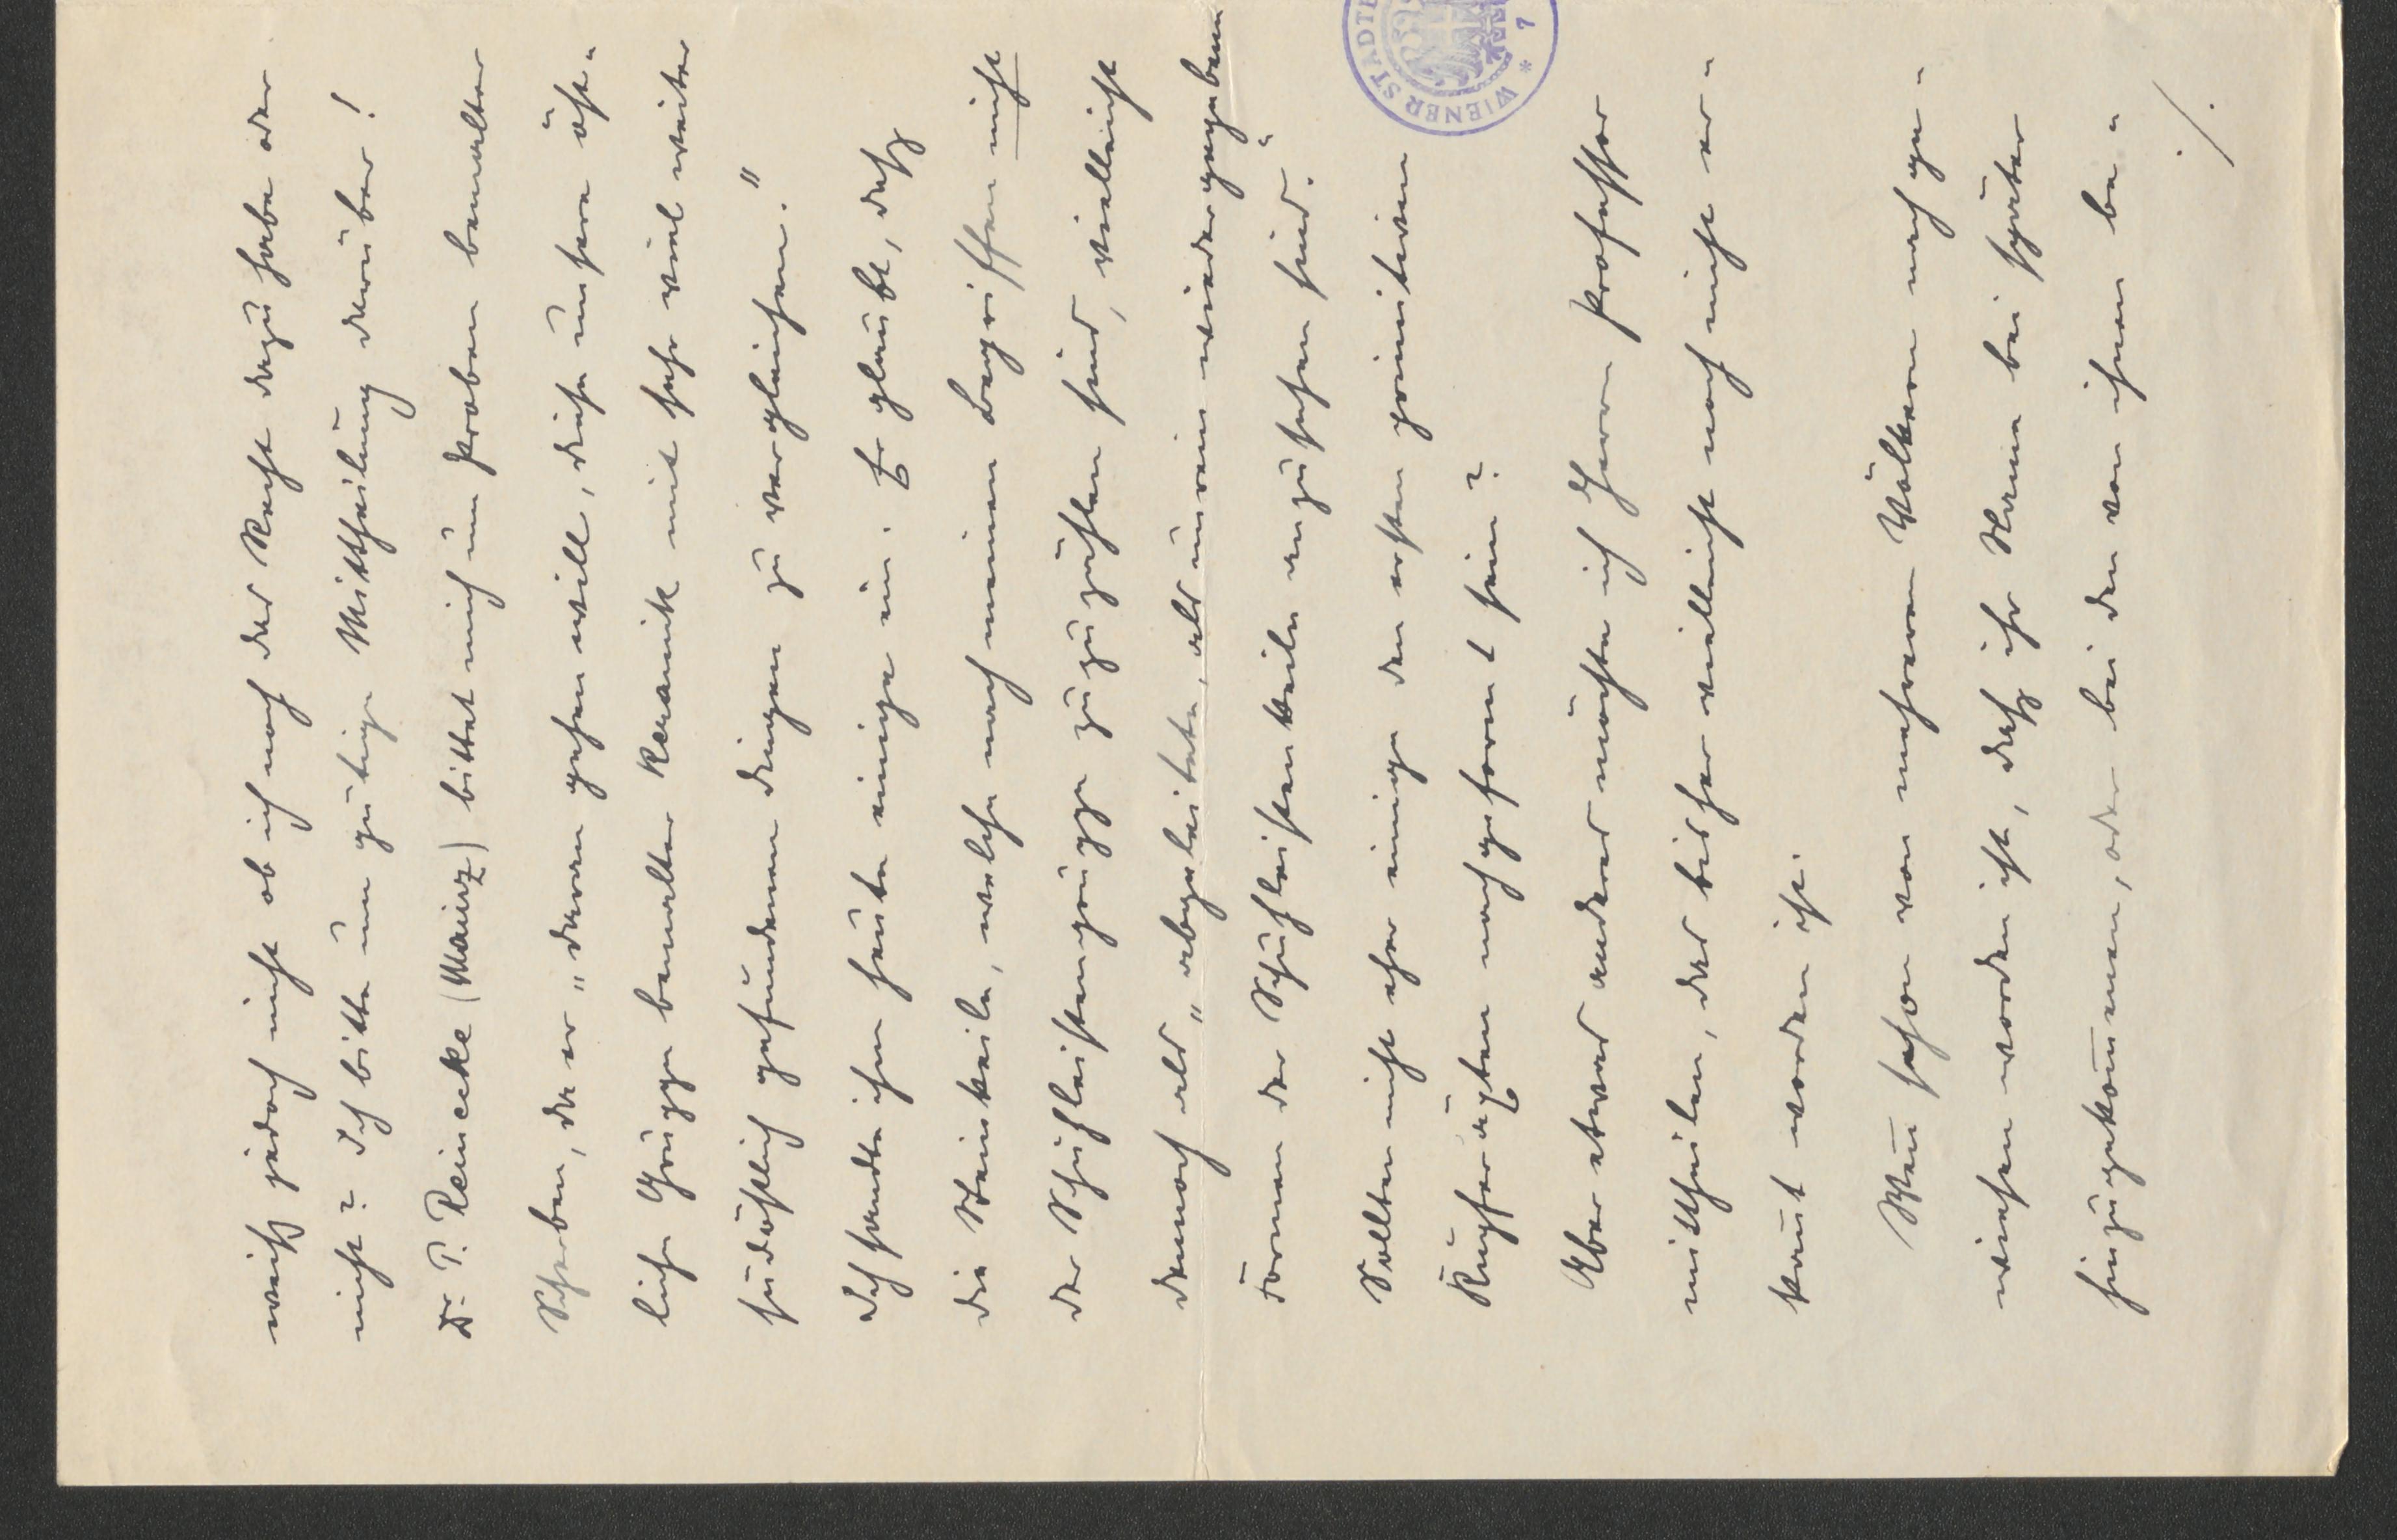 weiß jedoch nicht ob ich noch das Recht dazu habe oder
nicht? Ich bitte um gütige Mittheilung darüber!
Dr. P. Reinecke (Mainz) bittet mich um Proben bemalter
Scherben, da er „daran gehen will, diese unsere öst-
liche Gruppe bemalter Keramik mit sehr viel weiter
südöstlich gefundenen Dingen zu vergleichen."
Ich sandte ihm heute einige ein. Er glaubt, daß
die Steinkeile, welche nach meinen Begriffen nicht
der Schuhleistengruppe zuzuzählen sind, vielleicht
dennoch als „abgeleitete, als unrein wiedergegebene
Formen der Schuhleistenkeile anzusehen sind."
Sollten nicht eher einige den ersten primitiven
Kupferäxten nachgeformt sein?
Aber etwas anderes möchte ich Herrn Professor
mittheilen, das bisher vielleicht noch nicht er-
kannt worden ist.
Wenn schon von mehreren Völkern nachge-
wiesen worden ist, daß ihr Name bei später
hinzugekommenen, oder bei den von ihnen be-
./.
WIENER STÄDT
* 7